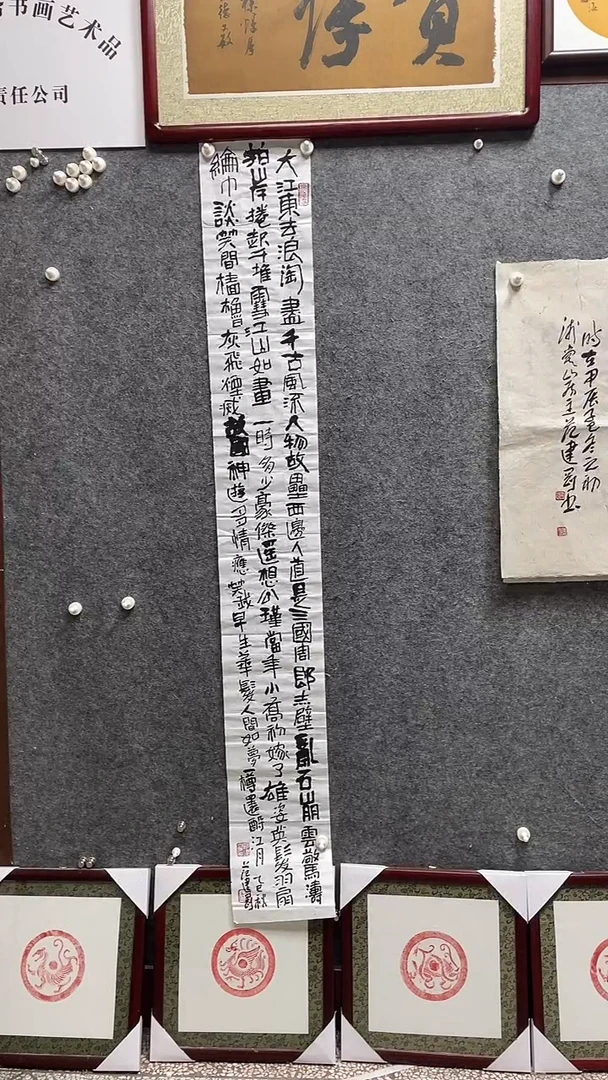 书画艺术品
责任公司
大江東去浪淘盡千古風流人物故壘西邊人道是三國周郎赤壁亂石崩雲驚濤
拍岸捲起千堆雪江山如畫一時多少豪傑遥想公瑾當年小喬初嫁了雄姿英髮羽扇
綸巾談笑間檣櫓灰飛煙滅故國神遊多情應笑我早生華髮人間如夢一樽還酹江月 乙巳秋
时在甲辰年冬之初